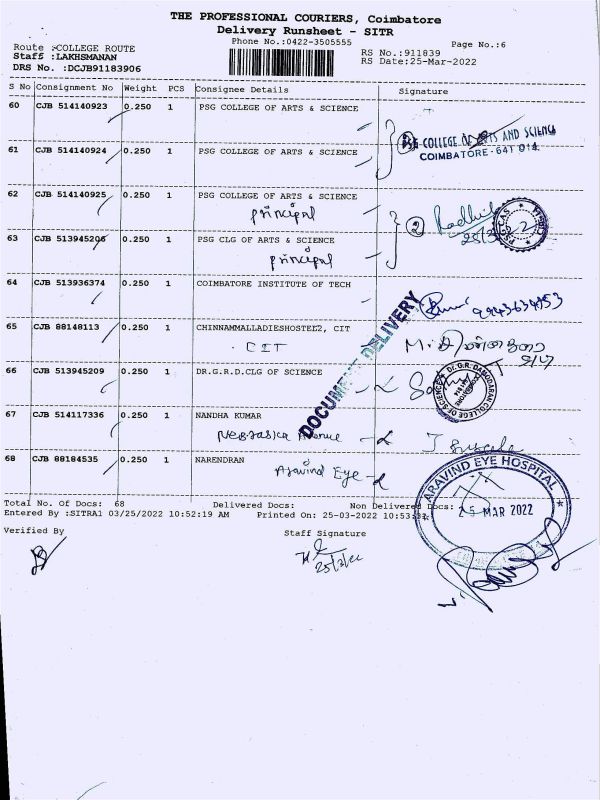 THE PROFESSIONAL COURIERS, Coimbatore
Delivery Runsheet - SITR
Phone No.:0422-3505555
Page No.:6
Route :COLLEGE ROUTE
RS No.:911839
Staff :LAKHSMANAN
RS Date:25-Mar-2022
DRS No. :DCJB91183906
S No Consignment No Weight PCS Consignee Details Signature
60 CJB 514140923 0.250 1 PSG COLLEGE OF ARTS & SCIENCE
PSG COLLEGE OF ARTS AND SCIENCE
COIMBATORE - 641 014.
61 CJB 514140924 0.250 1 PSG COLLEGE OF ARTS & SCIENCE
62 CJB 514140925 0.250 1 PSG COLLEGE OF ARTS & SCIENCE
principal
2
63 CJB 513945206 0.250 1 PSG CLG OF ARTS & SCIENCE
principal
64 CJB 513936374 0.250 1 COIMBATORE INSTITUTE OF TECH
65 CJB 88148113 0.250 1 CHINNAMMALLADIESHOSTEL2, CIT
CIT
66 CJB 513945209 0.250 1 DR.G.R.D.CLG OF SCIENCE
DOCUMENT DELIVERY
67 CJB 514117336 0.250 1 NANDHA KUMAR
68 CJB 88184535 0.250 1 NARENDRAN
Aravind Eye
ARAVIND EYE HOSPITAL
25 MAR 2022
Total No. Of Docs: 68 Delivered Docs: Non Delivered Docs:
Entered By :SITRA1 03/25/2022 10:52:19 AM Printed On: 25-03-2022 10:53:
Verified By
Staff Signature